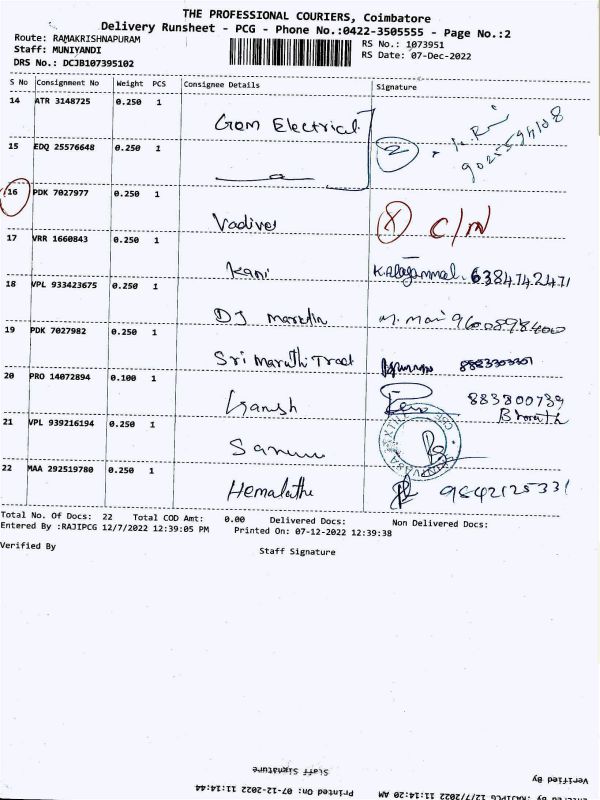 THE PROFESSIONAL COURIERS, Coimbatore
Delivery Runsheet - PCG - Phone No.:0422-3505555 - Page No.:2
Route: RAMAKRISHNAPURAM
RS No.: 1073951
Staff: MUNIYANDI
RS Date: 07-Dec-2022
DRS No.: DCJB107395102
S No Consignment No Weight PCS Consignee Details Signature
14 ATR 3148725 0.250 1
Gom Electrical
15 EDQ 25576648 0.250 1
2
16 PDK 7027977 0.250 1
Vadivel X C/N
17 VRR 1660843 0.250 1
Kani K.Alagammal. 6384742471
18 VPL 933423675 0.250 1
DJ M. Mari 9600898400
19 PDK 7027982 0.250 1
Sri Maruthi Tract 8883303301
20 PRO 14072894 0.100 1
883300739
Bharath
21 VPL 939216194 0.250 1
22 MAA 292519780 0.250 1
Hemalatha 9642125331
Total No. Of Docs: 22 Total COD Amt: 0.00 Delivered Docs: Non Delivered Docs:
Entered By :RAJIPCG 12/7/2022 12:39:05 PM Printed On: 07-12-2022 12:39:38
Verified By Staff Signature
Staff Signature Verified By
Printed On: 07-12-2022 11:14:44 RAJIPCG 12/7/2022 11:14:20 AM